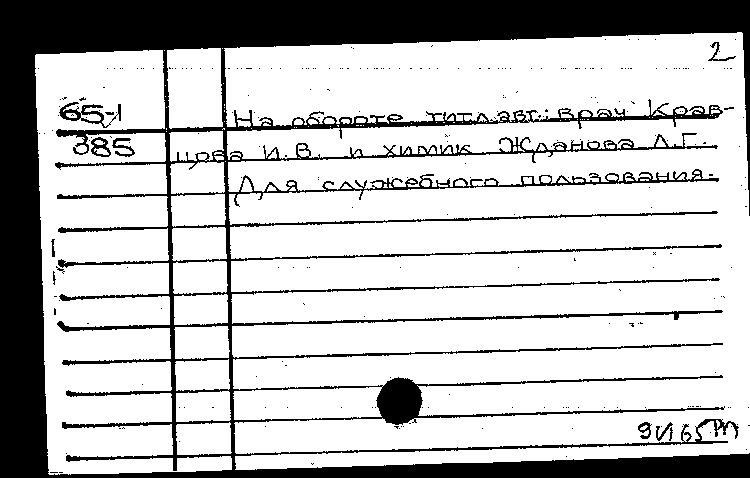 2
65-1
385
На обороте тит.л авт.: врач Крав-
цова И.В. и химик Жданова Л.Г.
Для служебного пользования.
9 VI 65